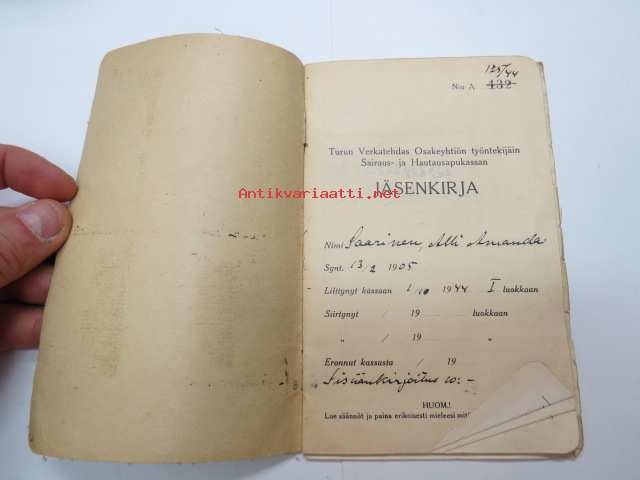 125/44
N:o A 432
Turun Verkatehdas Osakeyhtiön työntekijäin
Sairaus- ja Hautausapukassan
Antikvariaatti.net
JÄSENKIRJA
Nimi Saarinen, Alli Amanda
Synt. 13/2 1905
Liittynyt kassaan 1/10 1944 I luokkaan
Siirtynyt / 19 luokkaan
„ / 19 „
Eronnut kassasta / 19
Sisäänkirjoitus 10:-
HUOM.!
Lue säännöt ja paina erikoisesti mieleesi